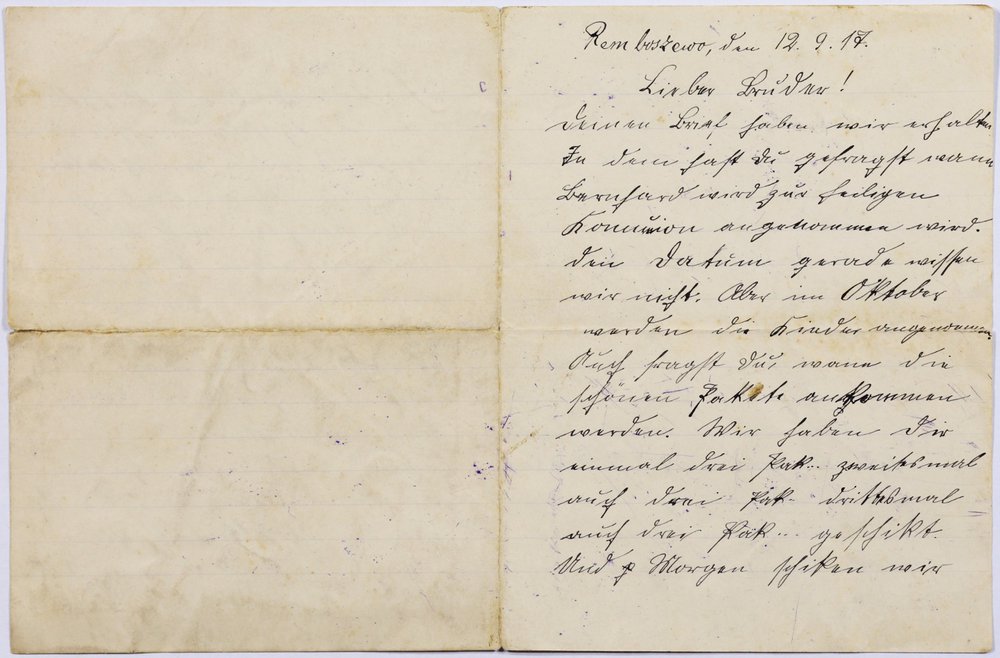 Remboszewo, den 12. 9. 17.
Lieber Bruder!
Deinen Brief haben wir erhalten
In dem hast du gefragst wann
Bernhard wird zur heiligen
Komunion angenommen wird.
den Datum gerade wissen
wir nicht. Aber im Oktober
werden die Kinder angenommen.
Auch fragst Du, wann die
schönen Pakete ankommen
werden. Wir haben Dir
einmal drei Pak.. zweitesmal
auch drei Pak.. drittesmal
auch drei Pak... geschikt.
Und Morgen schiken wir